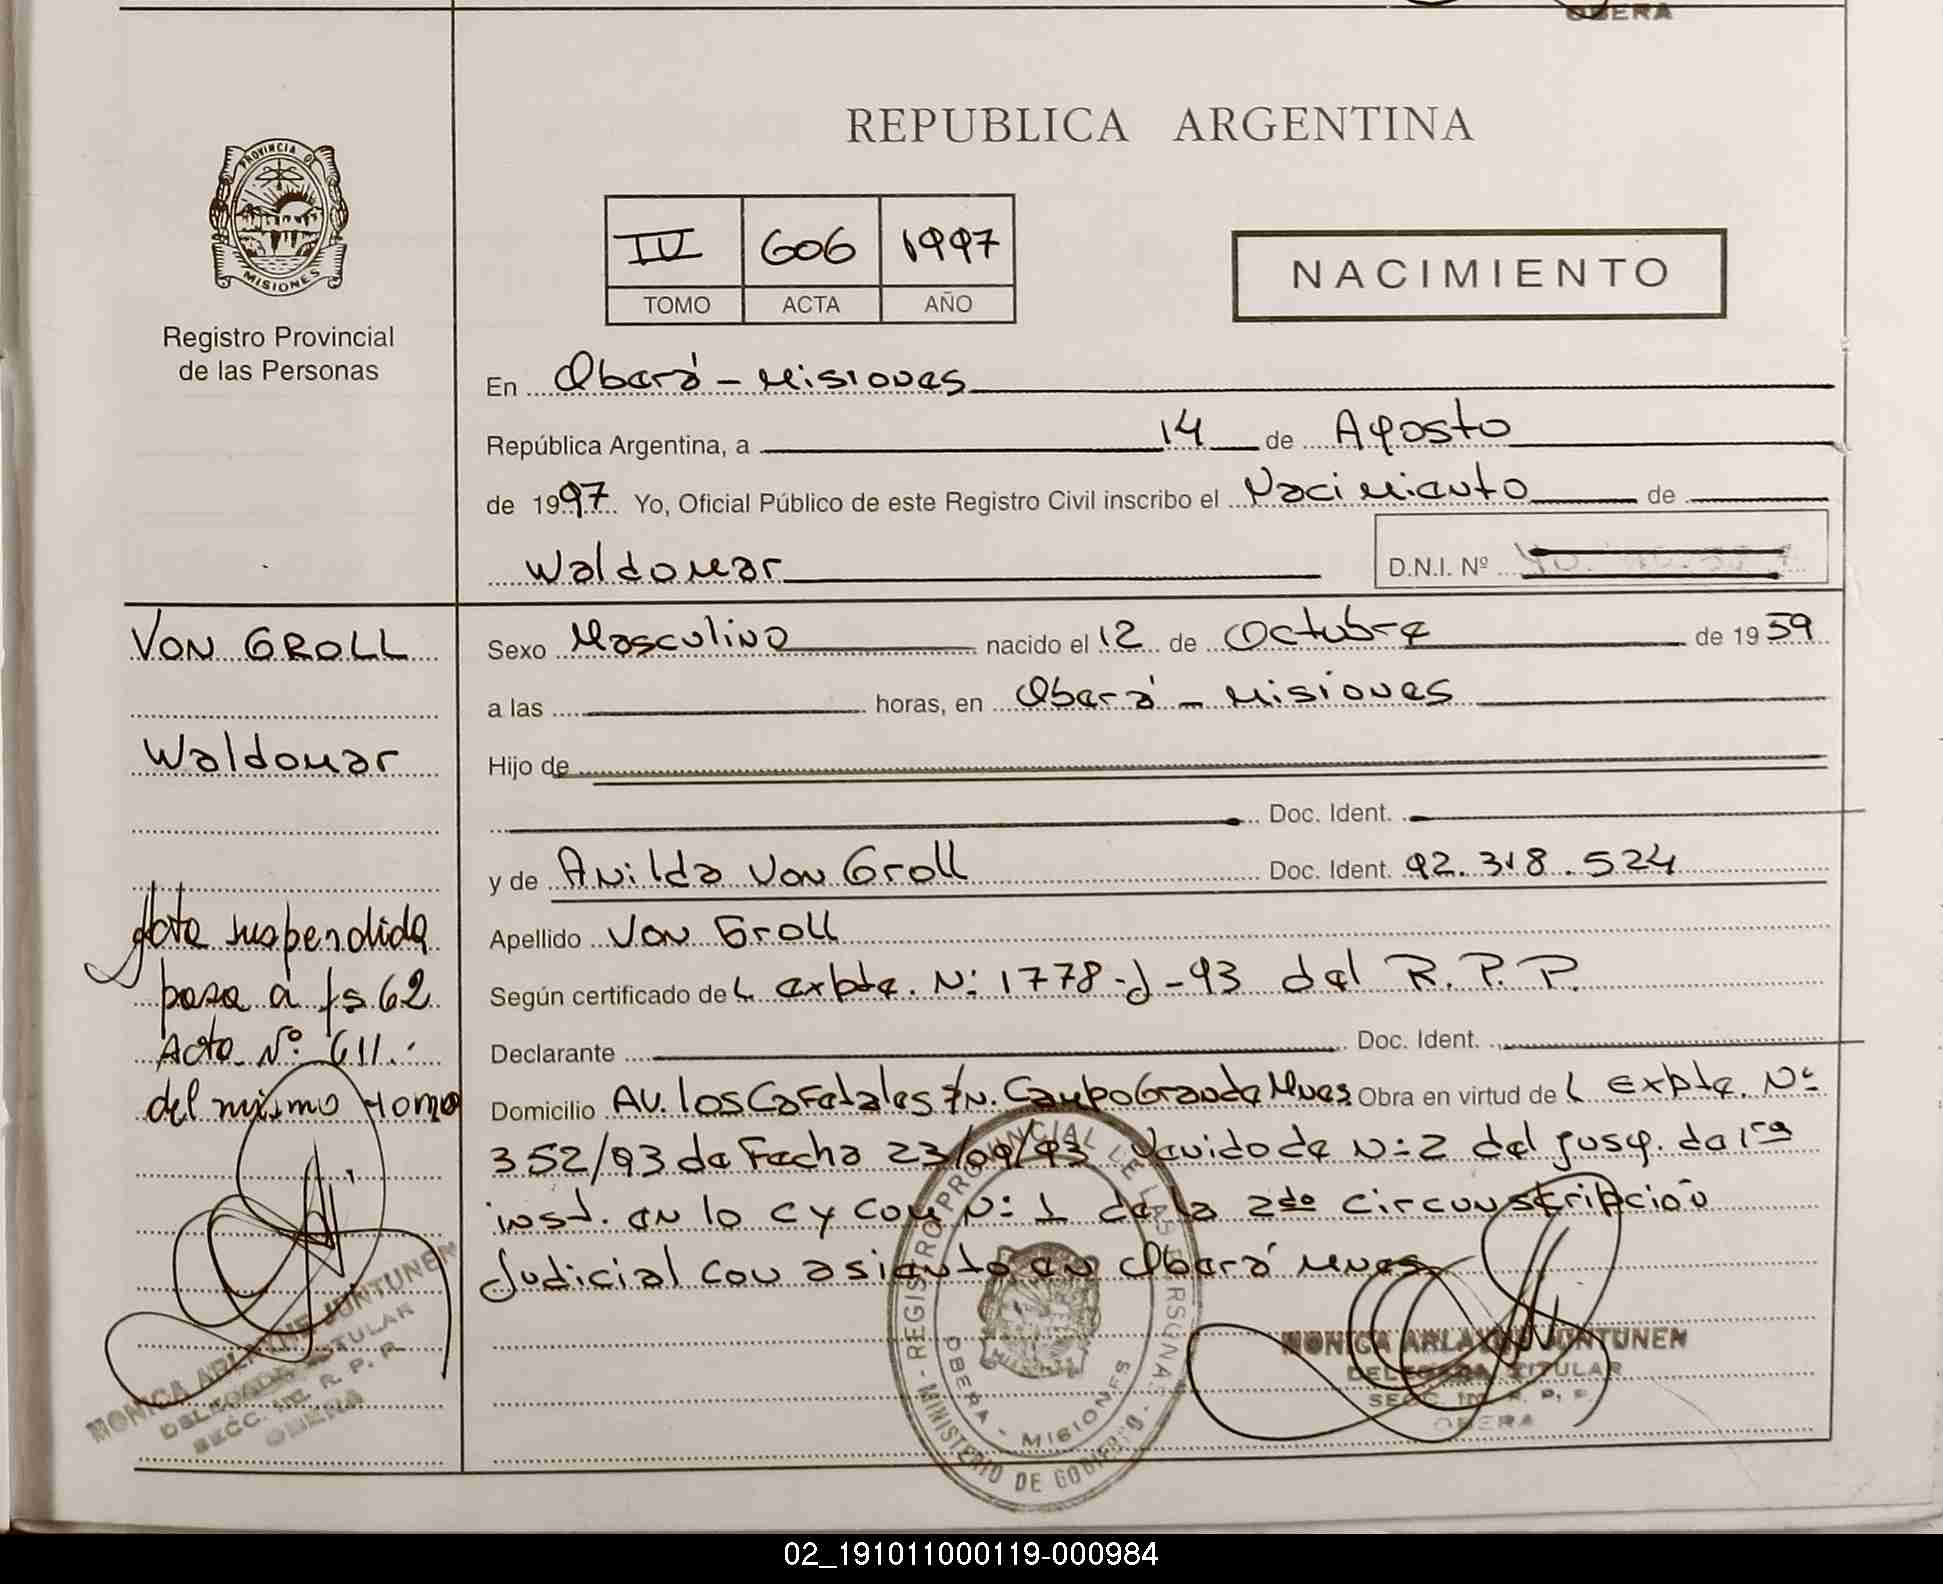 OBERA
PROVINCIA DE
MISIONES
Registro Provincial
de las Personas
REPUBLICA ARGENTINA
IV 606 1997
TOMO ACTA AÑO
NACIMIENTO
En Oberá - Misiones
República Argentina, a 14 de Agosto
de 1997 Yo, Oficial Público de este Registro Civil inscribo el Nacimiento de
Waldomar
D.N.I. Nº
VON GROLL
Waldomar
Acta suspendida
pasa a fs 62
Acta Nº 611.-
del mismo tomo
MONICA ARLAYNE JUNTUNEN
DELEGADA TITULAR
SECC. 1ra. R. P. P.
OBERA
Sexo Masculino nacido el 12 de Octubre de 19 59
a las horas, en Oberá - Misiones
Hijo de
Doc. Ident.
y de Anilda Von Groll Doc. Ident. 92.318.524
Apellido Von Groll
Según certificado de L expte. N: 1778-J-93 del R.P.P.
Declarante Doc. Ident.
Domicilio AV. los Cafetales S/N. Campo Grande Mnes Obra en virtud de L Expte. Nº
352/93 de Fecha 23/09/93 Venido de N:2 del Jusg. de 1ra
inst. en lo C y Com N: 1 de la 2da circunscripción
Judicial con asiento en Oberá Mnes
REGISTRO PROVINCIAL DE LAS PERSONAS
MINISTERIO DE GOBIERNO
OBERA - MISIONES
MONICA ARLAYNE JUNTUNEN
DELEGADA TITULAR
SECC. 1ra. R. P. P.
OBERA
02_191011000119-000984